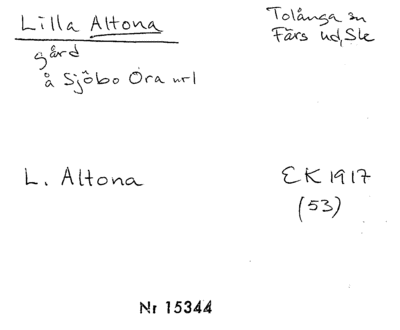 Lilla Altona
gård
å Sjöbo Ora nr1
Tolånga sn
Färs hd, Sk
L. Altona
EK 1917
(53)
Nr 15344